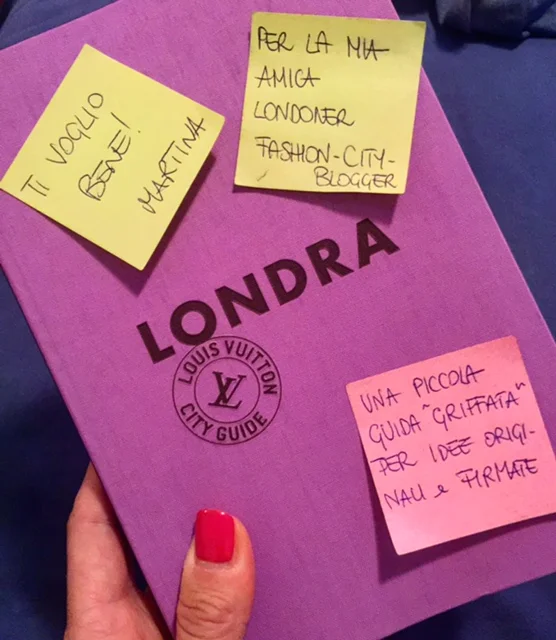 PER LA MIA
AMICA
LONDONER
FASHION-CITY-
BLOGGER
TI VOGLIO
BENE!
MARTINA
LONDRA
LOUIS VUITTON
LV
CITY GUIDE
UNA PICCOLA
GUIDA "GRIFFATA"
PER IDEE ORIGI-
NALI e FIRMATE